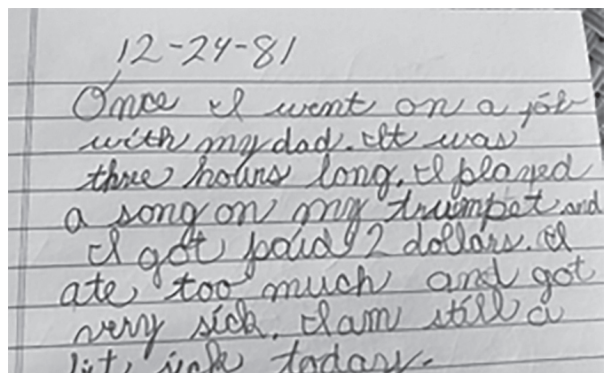 12-24-81
Once I went on a job
with my dad. It was
three hours long. I played
a song on my trumpet and
I got paid 2 dollars. I
ate too much and got
very sick. I am still a
bit sick today.